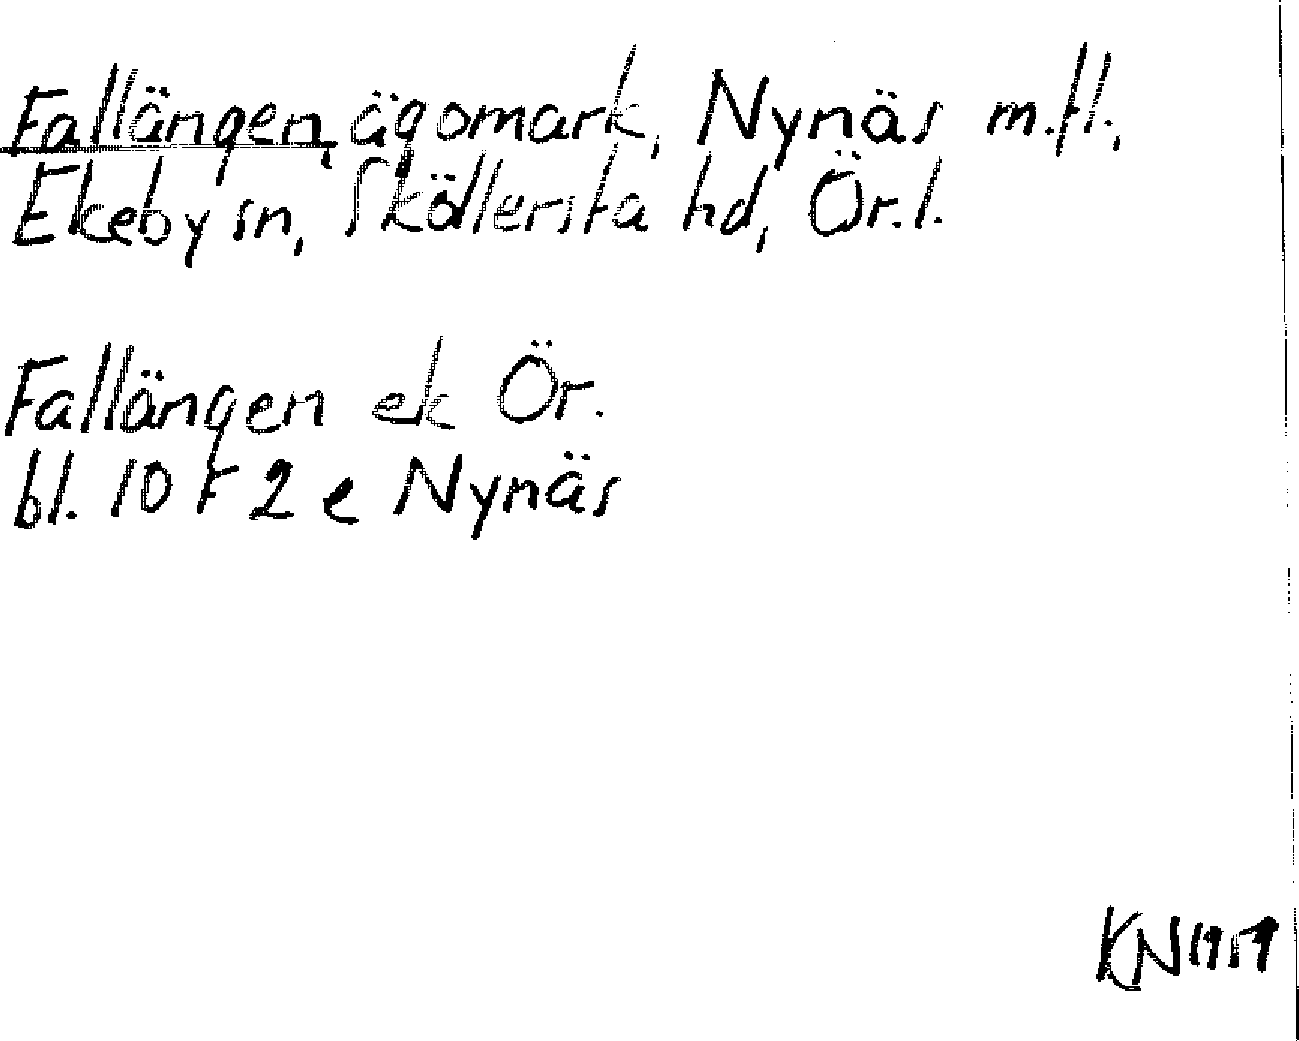 Fallängen, ägomark, Nynäs m.fl.,
Ekeby sn, Sköllersta hd, Ör.l.
Fallängen ek Ör.
bl. 10 F 2 e Nynäs
KN 1959